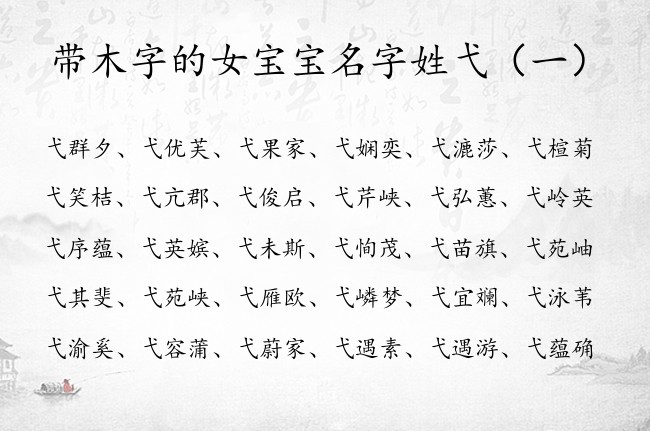 带木字的女宝宝名字姓弋（一）
弋群夕、弋优芙、弋果家、弋娴奕、弋漉莎、弋楦菊
弋笑桔、弋亢郡、弋俊启、弋芹峡、弋弘蕙、弋岭英
弋序蕴、弋英嫔、弋未斯、弋恂茂、弋苗旗、弋苑岫
弋其斐、弋苑峡、弋雁欧、弋嶙梦、弋宜斓、弋泳苇
弋渝奚、弋容蒲、弋蔚家、弋遇素、弋遇游、弋蕴确